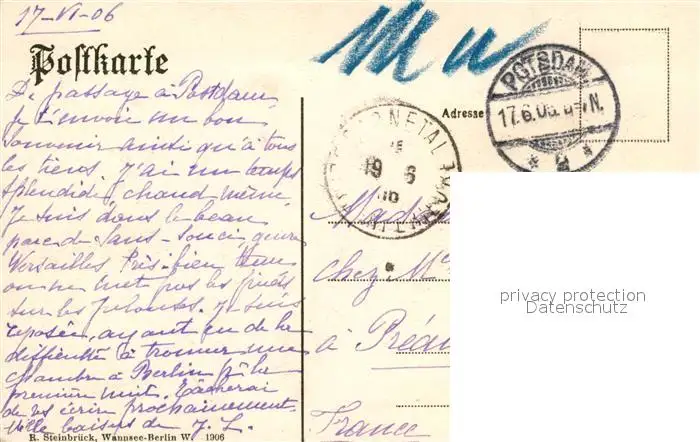 17-VI-06
Postkarte
De passage à Postdam
je t'envoie un bon
souvenir ainsi qu'à tous
les tiens. J'ai un temps
splendide, chaud même,
Je suis dans le beau
parc de Sans-Souci, genre
Versailles très bien tenu
on ne met pas les pieds
sur les pelouses. Je suis
reposée, ayant eu de la
difficulté à trouver une
chambre à Berlin p^r la
première nuit. Tâcherai
de vs écrire prochainement
Mille baisers de J. L.
R. Steinbrück, Wannsee-Berlin W. 1906
Adresse
POTSDAM
17.6.06. N.
19 6
chez M
à Préau
France
privacy protection
Datenschutz